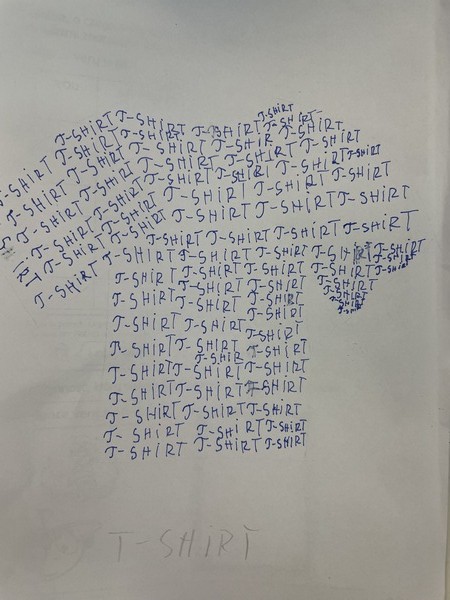 T-SHIRT
T-SHIRT T-SHIRT T-SHIRT T-SHiRT
T-SHIRT T-SHIRT T-SHIRT
T-SHIRT T-SHIRT T-SHiR T-SHIRT
T-SHIRT T-SHIRT T-SHIRT T-SHIRT T-SHIRT
T-SHIRT T-SHIRT T-SHIRT T-SHIRT T-SHIRT
T-SHIRT T-SHIRT T-SHiRT T-SHIRT
T-SHIRT T-SHIRT T-SHIRT T-SHIRT T-SHIRT
T-SHIRT T-SHIRT T-SHIRT T-SHIRT T-SHIRT
T-SHIRT T-SHIRT T-SHIRT T-SHIRT T-SHIRT T-SHIRT
T-SHIRT T-SHIRT T-SHIRT T-SHIRT T-SHIRT
T-SHIRT T-SHIRT T-SHIRT T-SHIRT
T-SHiRT T-SHIRT T-SHIRT T-SHIRT
T-SHIRT
T-SHIRT T-SHIRT T-SHIRT
T-SHiRT T-SHIRT T-SHIRT
T-SHiRT T-SHIRT T-SHiRT
T-SHiR
T-SHIRT T-SHIRT T-SHiRT
T-SHiRT T-SHIRT T-SHIRT
T-SHiRT T-SHiRT T-SHIRT
T-SHIRT T-SHiRT T-SHIRT
T-SHiRT T-SHIRT T-SHiRT
T-SHiRT